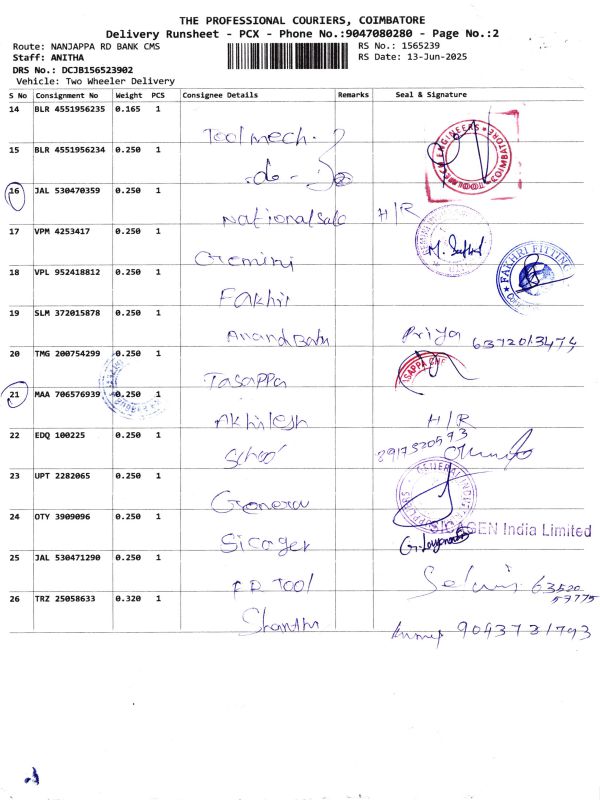 THE PROFESSIONAL COURIERS, COIMBATORE
Delivery Runsheet - PCX - Phone No.:9047080280 - Page No.:2
Route: NANJAPPA RD BANK CMS
RS No.: 1565239
Staff: ANITHA
RS Date: 13-Jun-2025
DRS No.: DCJB156523902
Vehicle: Two Wheeler Delivery
S No Consignment No Weight PCS Consignee Details Remarks Seal & Signature
14 BLR 4551956235 0.165 1 Toolmech.
15 BLR 4551956234 0.250 1 -do-
16 JAL 530470359 0.250 1 National Sale H/R
17 VPM 4253417 0.250 1 Gemini
18 VPL 952418812 0.250 1 Fakhri FAKHRI FITTING
19 SLM 372015878 0.250 1 Anand Babu Priya 6372013474
20 TMG 200754299 0.250 1 Tasappa
21 MAA 706576939 0.250 1 Akhilesh H/R
22 EDQ 100225 0.250 1 School 8917520593
23 UPT 2282065 0.250 1 General
24 OTY 3909096 0.250 1 Sicagen SICAGEN India Limited
25 JAL 530471290 0.250 1 RR Tool Selvi 63520 59775
26 TRZ 25058633 0.320 1 Shanthi 9043731793